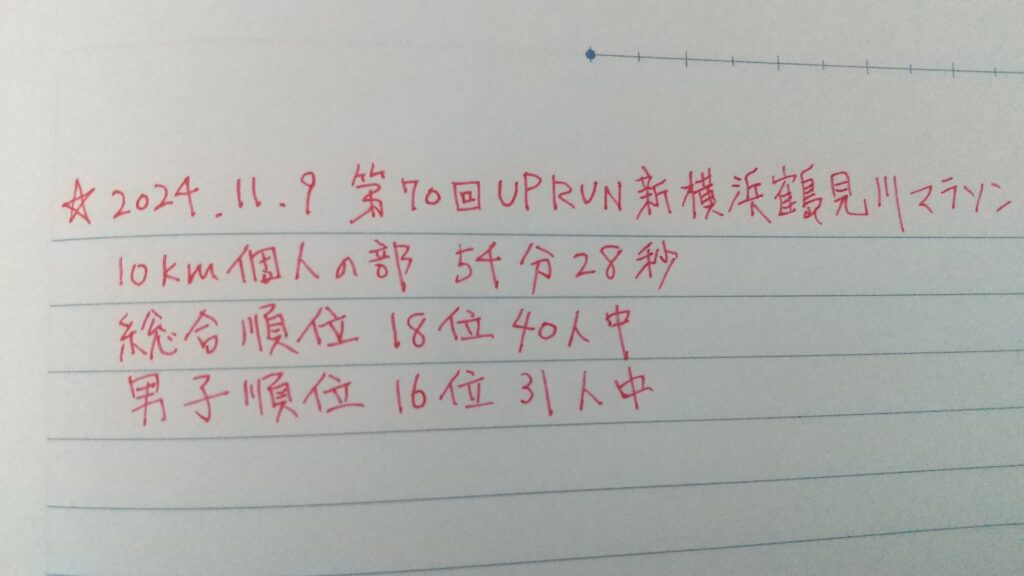 ☆2024.11.9 第70回UPRUN新横浜鶴見川マラソン
10km個人の部 54分28秒
総合順位 18位 40人中
男子順位 16位 31人中